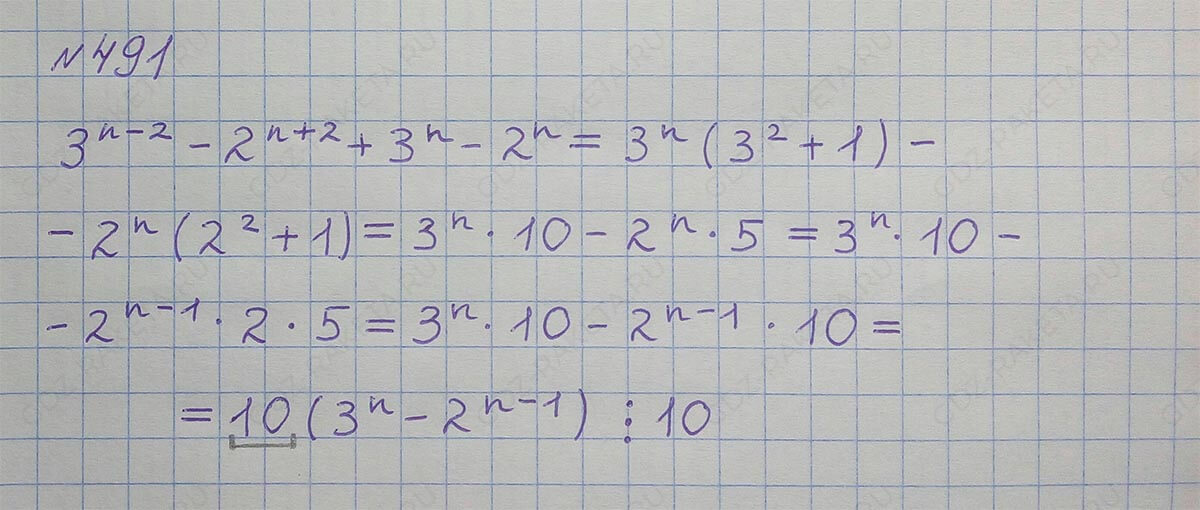 №491
3ⁿ⁻² - 2ⁿ⁺² + 3ⁿ - 2ⁿ = 3ⁿ(3² + 1) -
- 2ⁿ(2² + 1) = 3ⁿ · 10 - 2ⁿ · 5 = 3ⁿ · 10 -
- 2ⁿ⁻¹ · 2 · 5 = 3ⁿ · 10 - 2ⁿ⁻¹ · 10 =
= 10(3ⁿ - 2ⁿ⁻¹) ⋮ 10